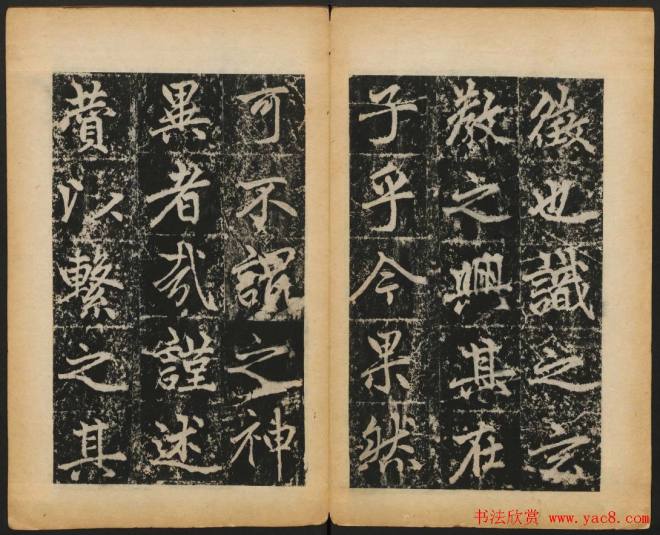 徵也識之云
教之興其在
子乎今果然
可不謂之神
異者哉謹述
贊以繫之其
书法欣赏 www.yac8.com